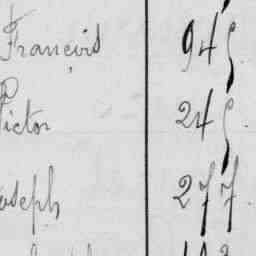 François 945
Victor 245
oseph 277